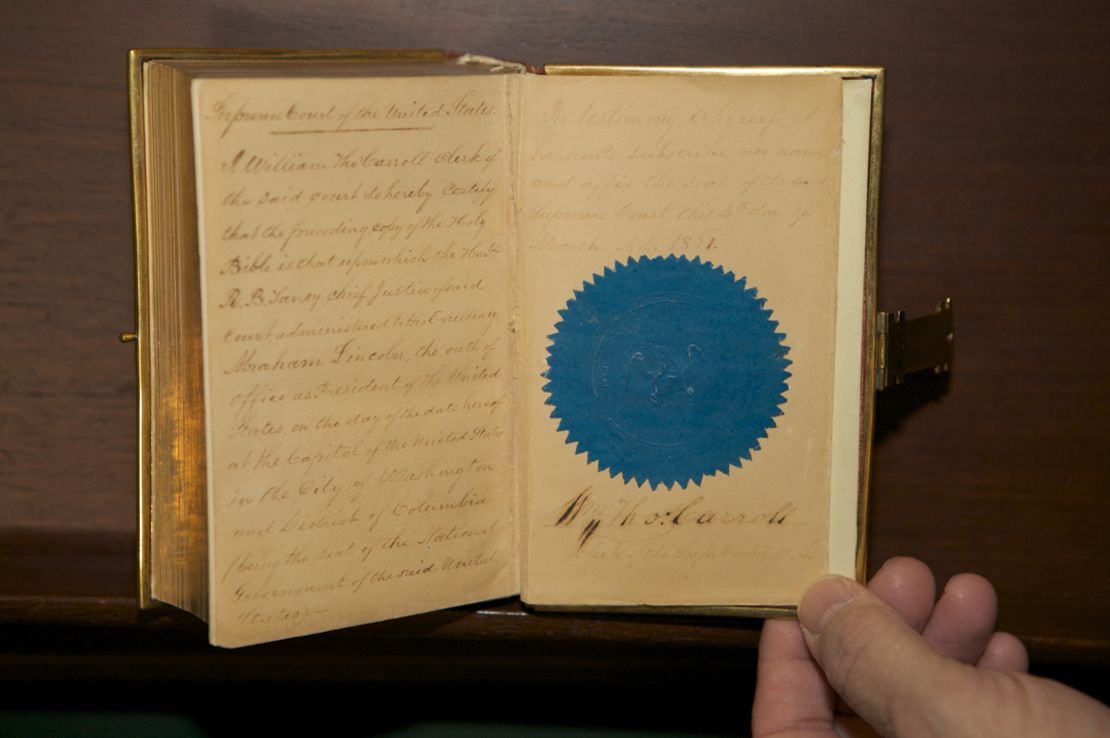 Supreme Court of the United States.
I William Tho: Carroll Clerk of
the said court do hereby certify
that the preceding copy of the Holy
Bible is that upon which the Honble
R. B. Taney, chief Justice of said
court, administered to His Excellency,
Abraham Lincoln, the oath of
office as President of the United
States, on the day of the date hereof
at the Capitol of the United States
in the City of Washington
and District of Columbia
(being the seat of the National
Government of the said United
States.
In testimony whereof I
hereunto subscribe my name
and affix the seal of the said
Supreme Court this 4th day of
March A.D. 1861.
Wm Tho: Carroll
Clerk of the Sup. Court U. S.